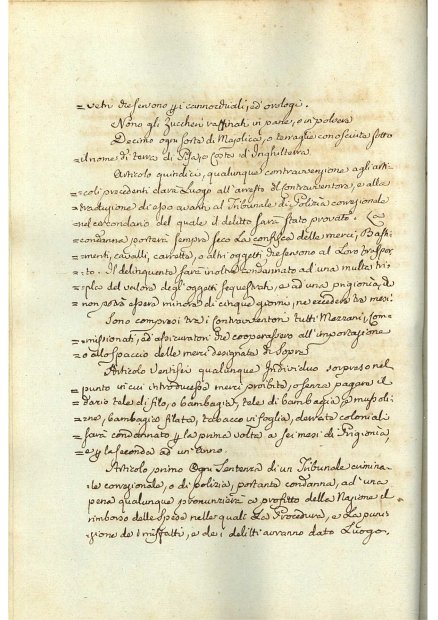 =vetri che servono p i cannocchiali, ed orologi.
Nono gli Zuccheri raffinati in pane, o in polvere
Decimo ogni sorta di Majolica, o terraglie conosciute sotto
=il nome di terra di Pipa, e Coste d'Inghilterra
Articolo quindici, qualunque contravenzione agli arti=
=coli precedenti darà Luogo all'arresto del contraventore, e alla
=traduzione di esso avanti al Tribunale di Polizia correzionale
=nel circondario del quale il delitto sarà stato provato. La
=condanna porterà sempre seco La confisca delle merci, Basti=
=menti, cavalli, carrette, o altri oggetti che servono al Loro traspor=
=to. Il delinquente sarà inoltre condannato ad una multa tri=
=plo del valore degli oggetti sequestrati, e ad una prigionia, che
=non potrà essere minore di cinque giorni, ne eccedere tre mesi.
Sono compresi tra i contraventori tutti Mezzani, Com=
=missionati, ed assicuratori che cooperassero all'importazione
=o allo spaccio delle merci designate di Sopra
Articolo Ventisei qualunque Individuo sorpreso nel
=punto in cui introducesse merci proibite, o senza pagare il
=dazio tele di filo, o bambagia, tele di bambagia, e mussoli=
=ne, bambagia filata, tabacco in foglia, derrate coloniali
=sarà condannato p la prima volta a sei mesi di Prigionia,
=e p la seconda ad un'anno.
Articolo primo Ogni Sentenza di un Tribunale crimina=
=le correzionale, o di polizia, portante condanna, ad una
=pena qualunque pronunzierà a profitto della Nazione il
=rimborso delle Spese nelle quali La Procedura, e La puni=
=zione de i misfatti, e dei delitti avranno dato Luogo.